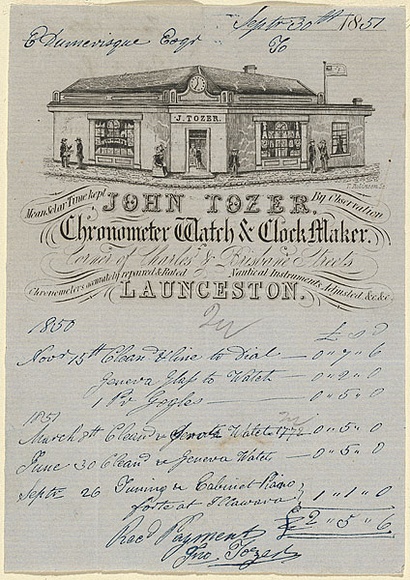 Septr 30th 1851
E Dumarisque Esqr
To
J. TOZER.
Mean Solar Time kept By Observation
JOHN TOZER.
Chronometer Watch & Clock Maker.
Corner of Charles & Brisbane Streets
Chronometers accurately repaired & Rated Nautical Instruments Adjusted &c &c
LAUNCESTON.
1850
£ s d
Novr 15th Clean & line to Dial — 0 " 7 " 6
Geneva Glass to Watch — 0 " 2 " 0
1 Pr Goggles — 0 " 5 " 0
1851
March 8th Clean & Watch 1772 — 0 " 5 " 0
June 30 Clean & Geneva Watch — 0 " 5 " 0
Septr 26 Tuning a Cabinet Piano
forte at Illawara 1 " 1 " 0
£ 2 " 5 " 6
Recd Payment
Jno. Tozer